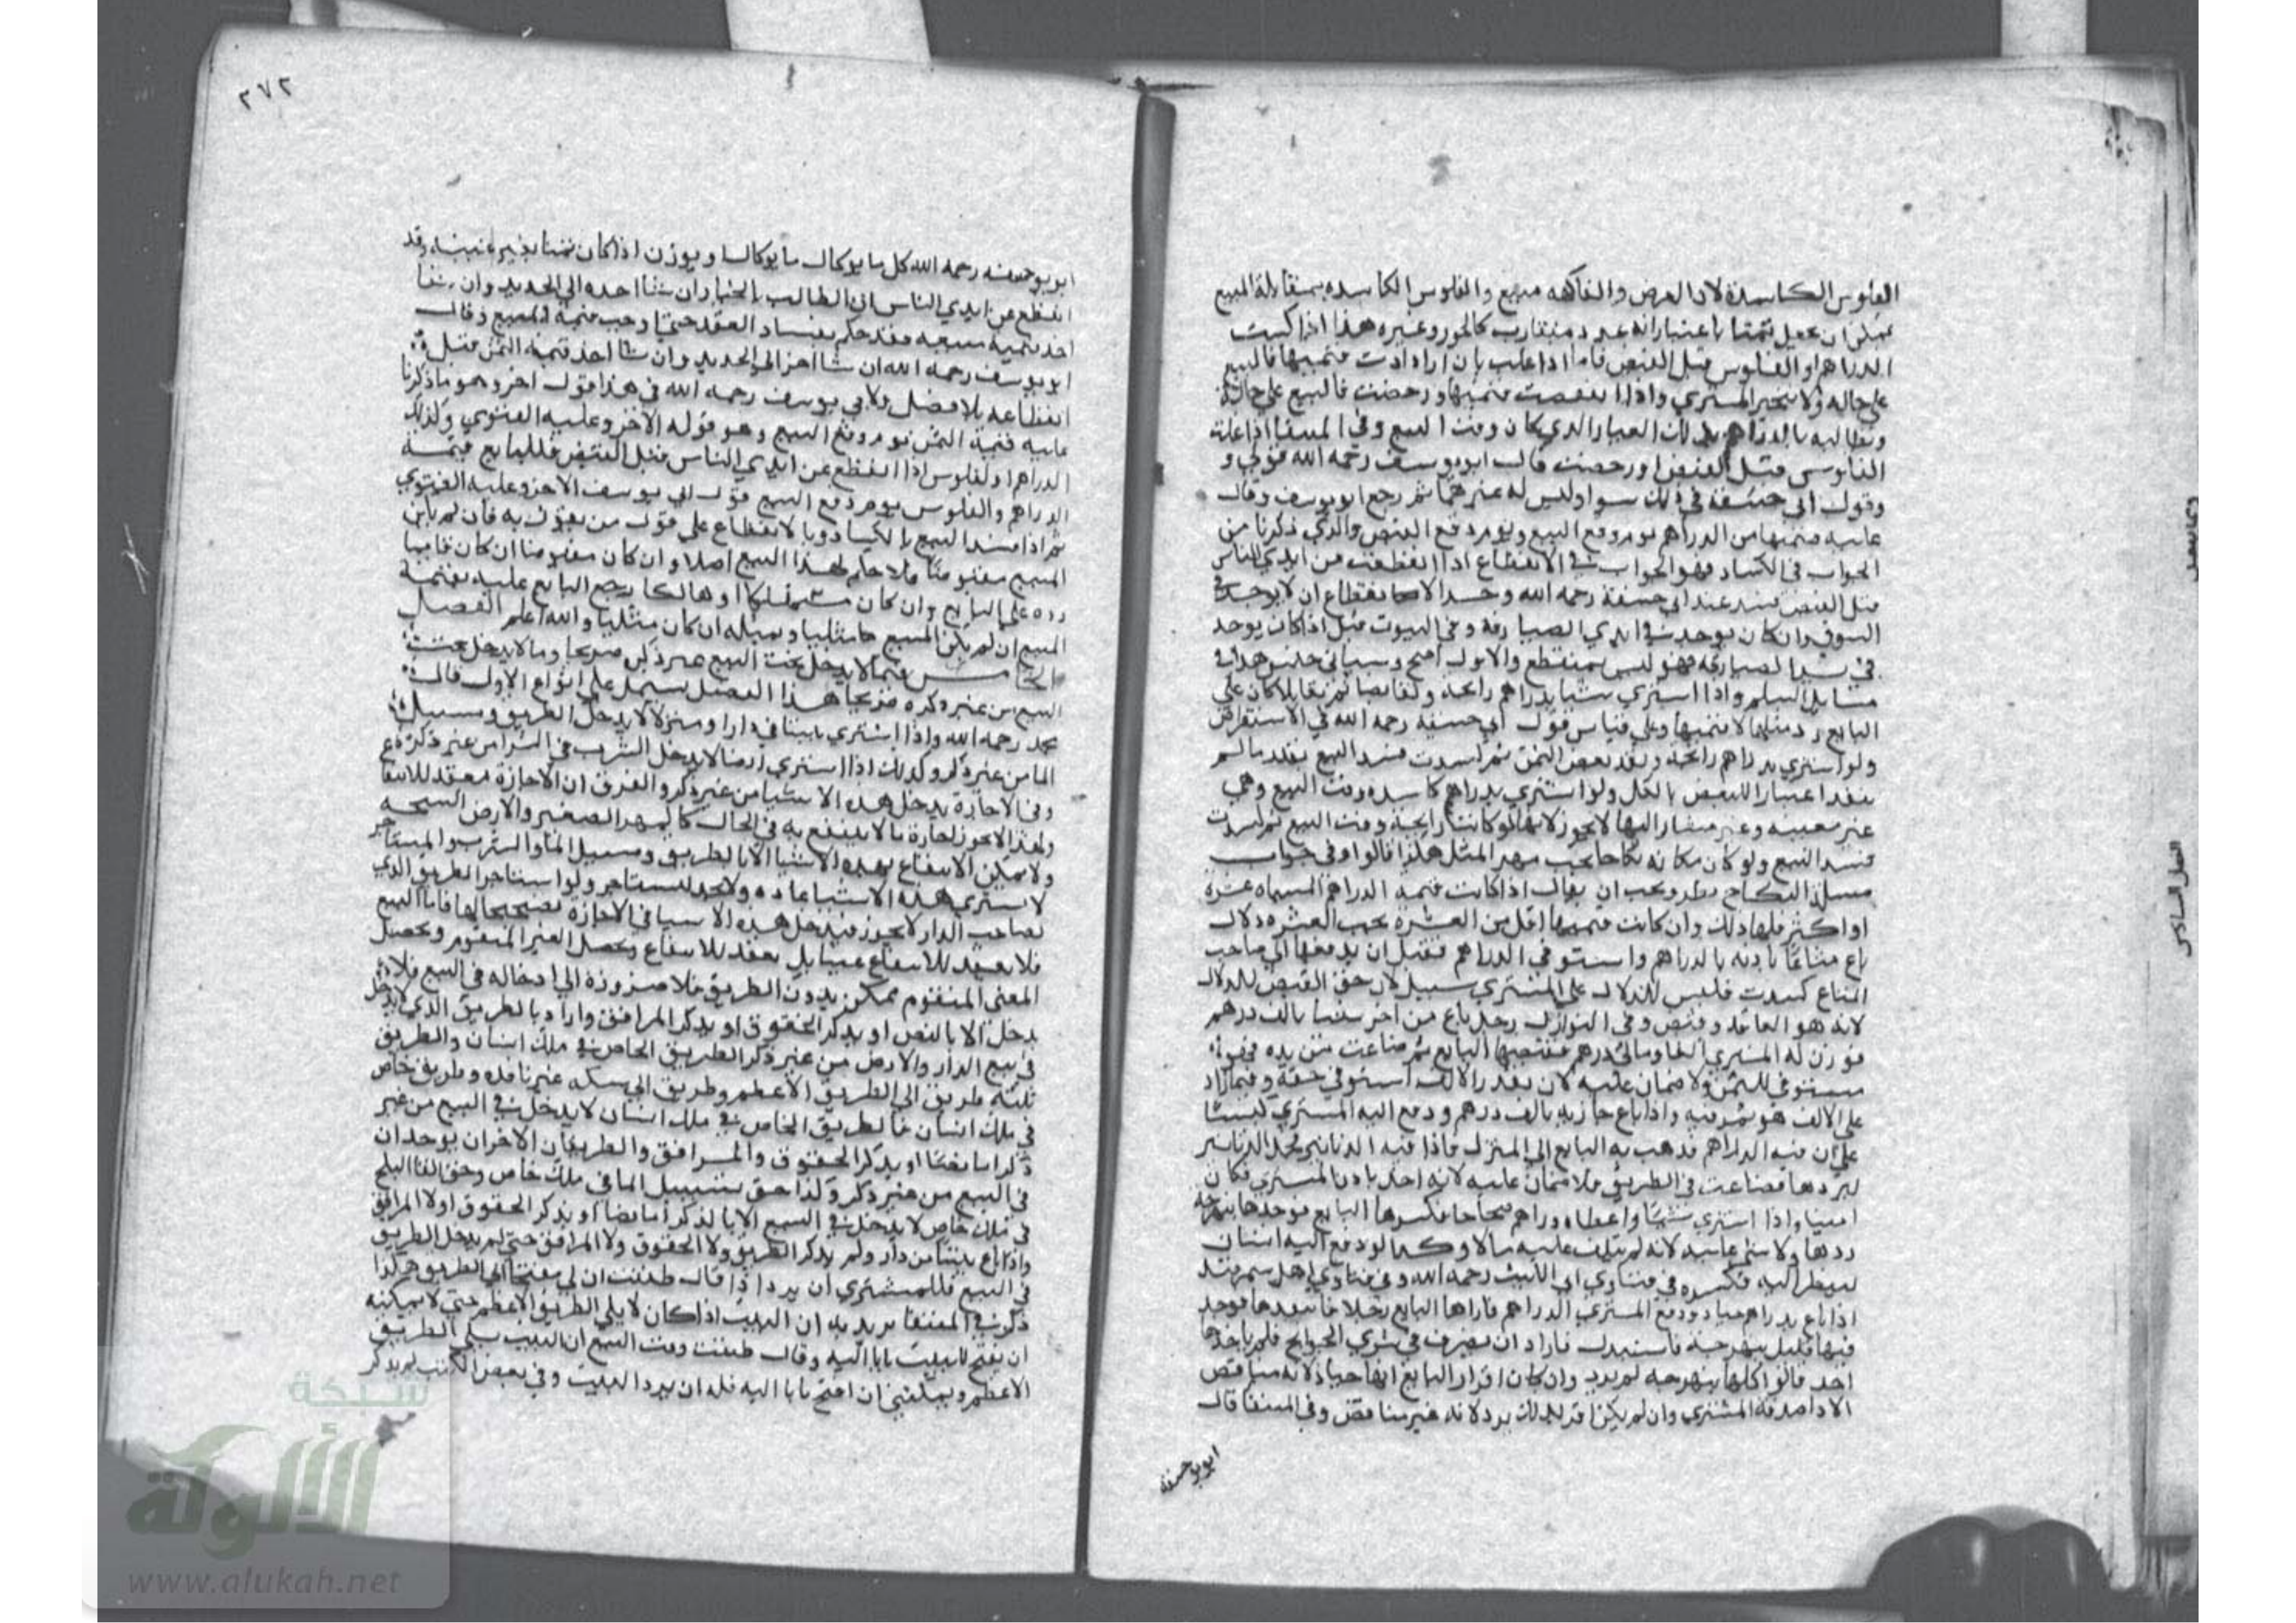 الفلوس الكاسدة لان العرض والفاكهه مبيع والفلوس الكاسده بمقابلة المبيع
يمكن ان يجعل ثمنا باعتبار انه عددي متقارب كالجوز وغيره هذا اذا كسدت
الدراهم او الفلوس قبل القبض فاما اذا غلت بان ازدادت قيمتها فالبيع
على حاله ولا يتخير المشتري واذا انتقصت قيمتها ورخصت فالبيع على حاله
ويطالبه بالدراهم بذلك العيار الذي كان وقت البيع وفي المنتقى اذا غلت
الفلوس قبل القبض او رخصت قال ابو يوسف رحمه الله قولي و
وقول ابي حنيفة في ذلك سوا وليس له غيرها ثم رجع ابو يوسف وقال
عليه قيمتها من الدراهم يوم وقع البيع ويوم وقع القبض والذي ذكرنا من
الجواب في الكساد فهو الجواب في الانقطاع اذا انقطعت من ايدي الناس
قبل القبض فسد عند ابي حنيفة رحمه الله وحد الانقطاع ان لا يوجد في
السوق وان كان يوجد في ايدي الصيارفة وفي البيوت قيل اذا كان يوجد
في ايدي الصيارفة فهو ليس بمنقطع والاول اصح وسياتي جنس هذا في
مسايل السلم واذا اشترى شيا بدراهم رايجة وتقابضا ثم تقايلا كان على
البايع رد مثلها لا قيمتها وعلى قياس قول ابي حنيفة رحمه الله في الاستقراض
ولو اشترى بدراهم رايجة ونقد بعض الثمن ثم كسدت فسد البيع بقدر ما لم
ينقد اعتبارا للبعض بالكل ولو اشترى بدراهم كاسده وقت البيع وهي
غير معينه وغير مشار اليها لا يجوز لانها لو كانت رايجة وقت البيع ثم كسدت
فسد البيع ولو كان مكانه نكاحا يجب مهر المثل هكذا قالوا وفي جواب
مسئلة النكاح نظر ويجب ان يقال اذا كانت قيمة الدراهم المسماه عشرة
او اكثر فلها ذلك وان كانت قيمتها اقل من العشرة يجب العشره دلال
باع متاعا باذنه بالدراهم واستوفى الدراهم فقبل ان يدفعها الى صاحب
المتاع كسدت فليس للدلال على المشتري سبيل لان حق القبض للدلال
لانه هو العاقد وقبض وفي النوازل رجل باع من اخر شيا بالف درهم
فوزن له المشتري الفا ومائتي درهم فقبضها البايع ثم ضاعت من يده فهو
مستوفي للثمن ولا ضمان عليه لان بقدر الالف استوفى حقه وفيما زاد
على الالف هو مؤتمن فيه واذا باع جارية بالف درهم ودفع اليه المشتري كيسا
على ان فيه الدراهم فذهب به البايع الى المنزل فاذا فيه الدنانير فحمل الدنانير
ليردها فضاعت في الطريق فلا ضمان عليه لانه اخذ باذن المشتري فكان
امينا واذا اشترى شيا واعطاه دراهم صحاحا فكسرها البايع فوجدها نبهرجه
ردها ولا شي عليه لانه لم يتلف عليه مالا وكما لو دفع اليه انسان
لينظر اليه فكسره في فتاوى ابي الليث رحمه الله وفي فتاوي اهل سمرقند
اذا باع بدراهم جياد ودفع المشتري الدراهم فاراها البايع رجلا فانتقدها فوجد
فيها قليل نبهرجة فاستبدل فاراد ان يصرف في شري الحوايج فلم ياخذها
احد قالوا كلها نبهرجه لم يرد وان كان اقرار البايع انها جياد لانه مناقض
الا اذا صدقه المشتري وان لم يكن اقر بذلك يرد لانه غير مناقض وفي المنتقا قال
ابو حنيفه
٢٧٢
ابو حنيفه رحمه الله كل ما يوكال ما يوكال او يوزن اذا كان ثمنا بغير عينه وقد
انقطع عن ايدي الناس ان الطالب بالخيار ان شا اخذه الى الجديد وان شا
اخذ قيمته فقد حكم بفساد العقد حتى اوجب قيمة المبيع وقال
ابو يوسف رحمه الله ان شا اخر الى الجديد وان شا اخذ قيمة الثمن قبل
انقطاعه بلا فصل ولابي يوسف رحمه الله في هذا قول اخر وهو ما ذكرنا
عليه قيمة الثمن يوم وقع البيع وهو قوله الاخر وعليه الفتوى وكذلك
الدراهم والفلوس اذا انقطع عن ايدي الناس قبل القبض فللبايع قيمة
الدراهم والفلوس يوم وقع البيع قول ابي يوسف الاخر وعليه الفتوي
ثم اذا فسد البيع بالكساد وبالانقطاع على قول من يقول به فان لم يكن
المبيع مقبوضا فلا حكم لهذا البيع اصلا وان كان مقبوضا ان كان قايما
رده على البايع وان كان مستهلكا او هالكا يرجع البايع عليه بقيمة
المبيع ان لم يكن المبيع مثليا وبمثله ان كان مثليا والله اعلم الفصل
الخامس فيما لا يدخل تحت البيع من غير ذكره صريحا وما لا يدخل تحت
البيع من غير ذكره صريحا هذا الفصل يشتمل على انواع الاول قال
محمد رحمه الله واذا اشترى بيتا في دار او منزلا لا يدخل الطريق ومسيل
الما من غير ذكر وكذلك اذا اشترى ارضا لا يدخل الشرب في الشرا من غير ذكره
وفي الاجارة يدخل هذه الاشيا من غير ذكر والفرق ان الاجارة تعقد للانتفاع
ولهذا لا يجوز اجارة ما لا ينتفع به في الحال كالمهر الصغير والارض السبخه
ولا يمكن الانتفاع بهذه الاشيا الا بالطريق ومسيل الما والشرب والمستاجر
لا يشتري هذه الاشيا عادة ولو استاجر الطريق الذي
لصاحب الدار لا يجوز فيدخل هذه الاشيا في الاجارة تصحيحا لها فاما البيع
فلا يعقد للانتفاع عينا بل يعقد للانتفاع وتحصيل العين المتقوم وتحصيل
المعنى المتقوم ممكن بدون الطريق فلا ضرورة الى ادخاله في البيع فلا
يدخل الا بالنص او بذكر الحقوق او بذكر المرافق واراد بالطريق الذي لا يدخل
في بيع الدار والارض من غير ذكر الطريق الخاص في ملك انسان والطريق
ثلثة طريق الى الطريق الاعظم وطريق الى سكه غير نافذه وطريق خاص
في ملك انسان فالطريق الخاص في ملك انسان لا يدخل في البيع من غير
ذكر اما نصا او بذكر الحقوق والمرافق والطريقان الاخران يدخلان
في البيع من غير ذكر وكذا حق تسييل الما في ملك خاص وحق القا الثلج
في ملك خاص لا يدخل في البيع الا بالذكر اما نصا او بذكر الحقوق او المرافق
واذا باع بيتا من دار ولم يذكر الطريق ولا الحقوق ولا المرافق حتى لم يدخل الطريق
في البيع فللمشتري ان يرد اذا قال ظننت ان لي مفتحا الى الطريق هكذا
ذكر في المنتقا يريد به ان البيت اذا كان لا يلي الطريق الاعظم حتى لا يمكنه
ان يفتح للبيت بابا اليه وقال ظننت وقت البيع ان البيت يلي الطريق
الاعظم ويمكنني ان افتح بابا اليه فله ان يرد البيت وفي بعض الكتب لم يذكر
شبكة
الألوكة
www.alukah.net